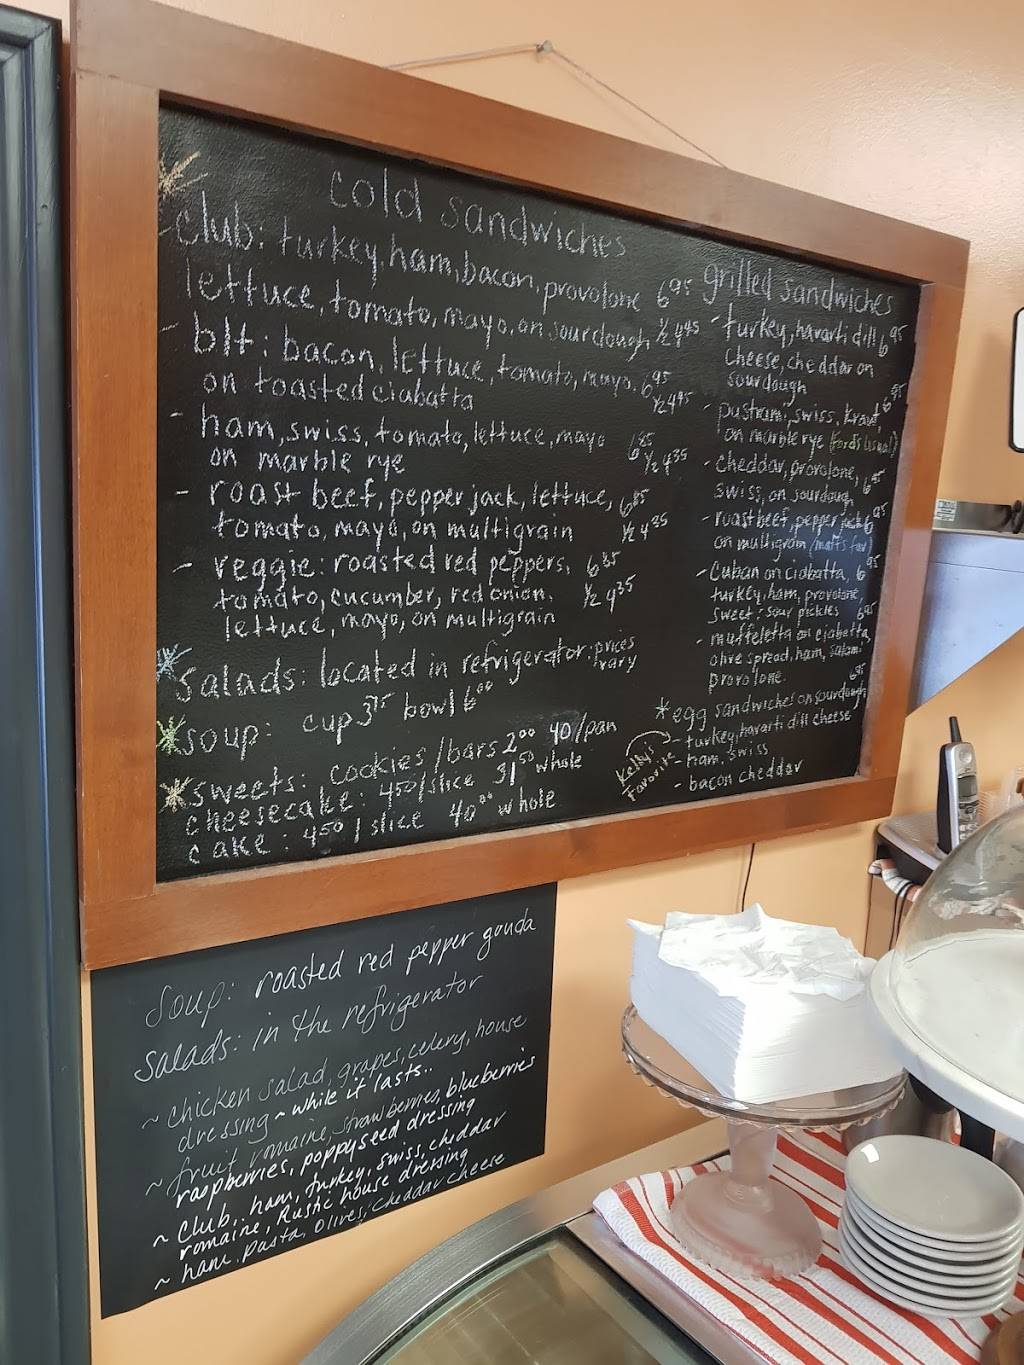 cold sandwiches
- club: turkey, ham, bacon, provolone 6 95
lettuce, tomato, mayo, on sourdough, 1/2 4 45
- blt: bacon, lettuce, tomato, mayo. 6 95
on toasted ciabatta 1/2 4 45
- ham, swiss, tomato, lettuce, mayo 6 85
on marble rye 1/2 4 35
- roast beef, pepper jack, lettuce, 6 85
tomato, mayo, on multigrain 1/2 4 35
- veggie: roasted red peppers, 6 35
tomato, cucumber, red onion. 1/2 4 35
lettuce, mayo, on multigrain
Salads: located in refrigerator. prices
vary
Soup: cup 3 75 bowl 6 00
*sweets: cookies/bars 2 00 40/pan
cheesecake: 4 50/slice 31 50 whole
cake: 4 50/slice 40 00 whole
grilled sandwiches
- turkey, havarti dill 6 95
cheese, cheddar on
sourdough
- pastrami, swiss, kraut, 6 95
on marble rye (Ford's usual)
- cheddar, provolone, 6 95
swiss, on sourdough
- roast beef, pepper jack 6 95
on multigrain (matt's fav)
- Cuban on ciabatta, 6 95
turkey, ham, provolone,
sweet & sour pickles
- muffeletta on ciabatta, 6 95
olive spread, ham, salami
provolone.
*egg sandwiches on sourdough 6 95
- turkey, havarti dill cheese
- ham, swiss
- bacon cheddar
Kelly's
Favorite
Soup: roasted red pepper gouda
Salads: in the refrigerator
~ chicken salad, grapes, celery, house
dressing ~ while it lasts..
~ fruit romaine, strawberries, blueberries
raspberries, poppyseed dressing
~ Club, ham, turkey, swiss, cheddar
romaine, Rustic house dressing
~ ham, pasta, olives, cheddar cheese